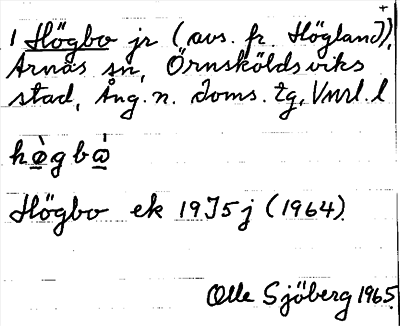 +
1 Högbo jr (avs. fr. Högland),
Arnäs sn, Örnsköldsviks
stad, Ång. n. doms. tg, Vnrl. l
hø̀gbὼ
Högbo ek 19J5j (1964).
Olle Sjöberg 1965.